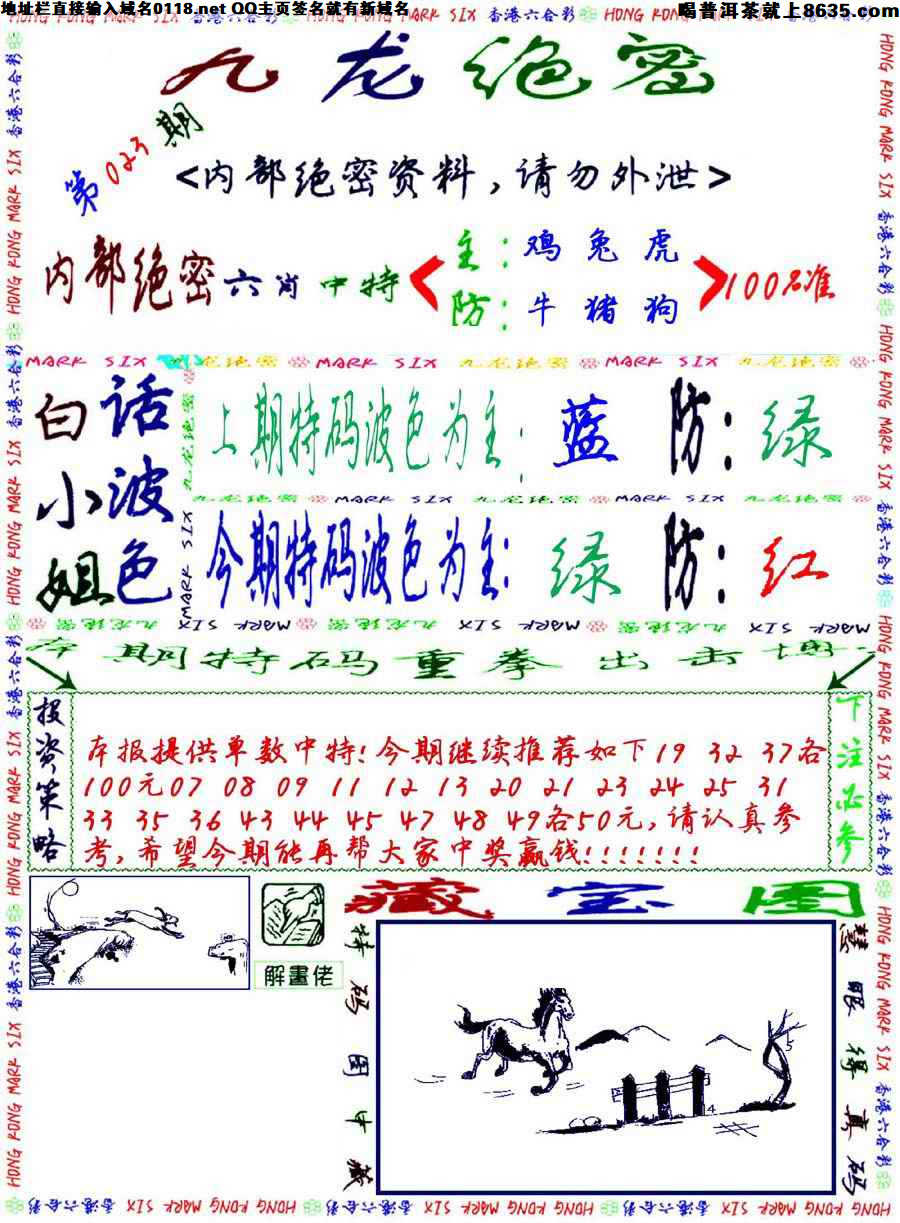 地址栏直接输入域名0118.net QQ主页签名就有新域名
喝普洱茶就上8635.com
HONG KONG MARK SIX 香港六合彩
九龙绝密
第023期
<内部绝密资料，请勿外泄>
内部绝密六肖中特
主：鸡 兔 虎
防：牛 猪 狗
100%准
MARK SIX 九龙绝密 MARK SIX 九龙绝密 MARK SIX 九龙绝密
白话
小波
姐色
上期特码波色为主：蓝 防：绿
九龙绝密 MARK SIX 九龙绝密 MARK SIX 九龙绝密
今期特码波色为主：绿 防：红
九龙绝密 MARK SIX 九龙绝密 MARK SIX
本期特码重拳出击
报资策略
本报提供单数中特！今期继续推荐如下19 32 37各
100元07 08 09 11 12 13 20 21 23 24 25 31
33 35 36 43 44 45 47 48 49各50元，请认真参
考，希望今期能再帮大家中奖赢钱！！！！！！！
下注必参
解畫佬
藏宝图
特码图中藏
慧眼得真码